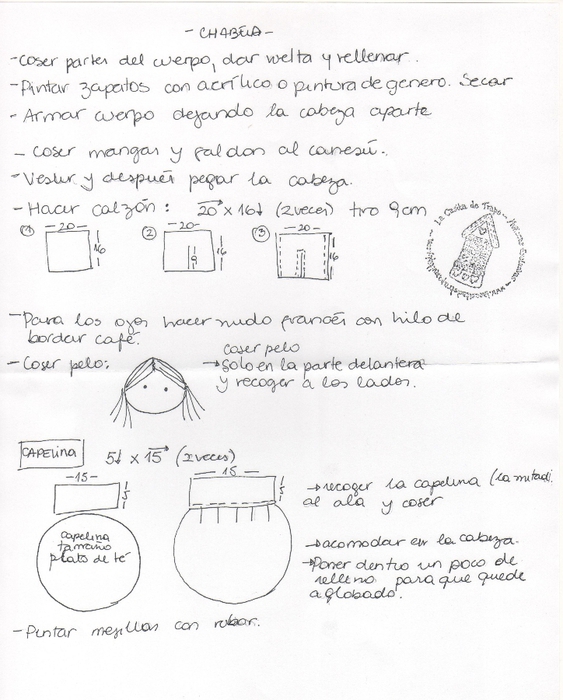 - CHABELA -
- Coser partes del cuerpo, dar vuelta y rellenar.
- Pintar zapatos con acrílico o pintura de genero. Secar
- Armar cuerpo dejando la cabeza aparte
- Coser mangas y faldon al canesú.
- Vestir y después pegar la cabeza.
- Hacer calzón: 20 → x 16 ↓ (2 veces) tiro 9cm
① - 20 - 16
② - 20 - 9 16
③ - 20 - 16
La Casita de Trapo
- Para los ojos hacer nudo francés con hilo de
bordar café.
- Coser pelo:
coser pelo
→ solo en la parte delantera
y recoger a los lados.
CAPELINA 5 ↓ x 15 → (2 veces)
- 15 - 5
- 15 - 5
capelina
tamaño
plato de té
→ recoger la capelina (la mitad)
al ala y coser
→ acomodar en la cabeza.
→ Poner dentro un poco de
relleno para que quede
aglobado.
- Pintar mejillas con rubor.